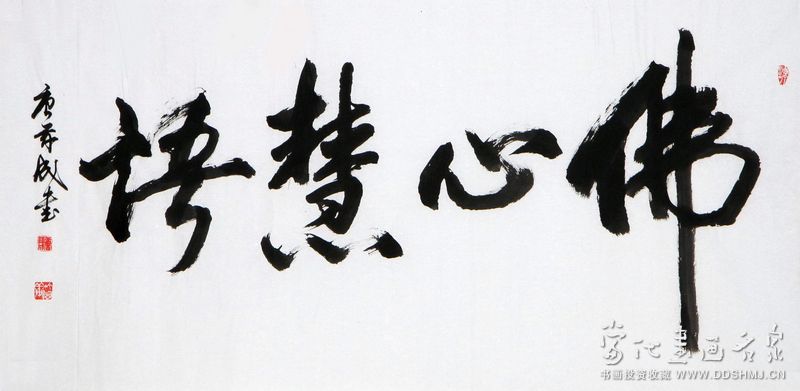 佛心慧悟
当代書画名家
书画投资收藏 WWW.DDSHMJ.CN